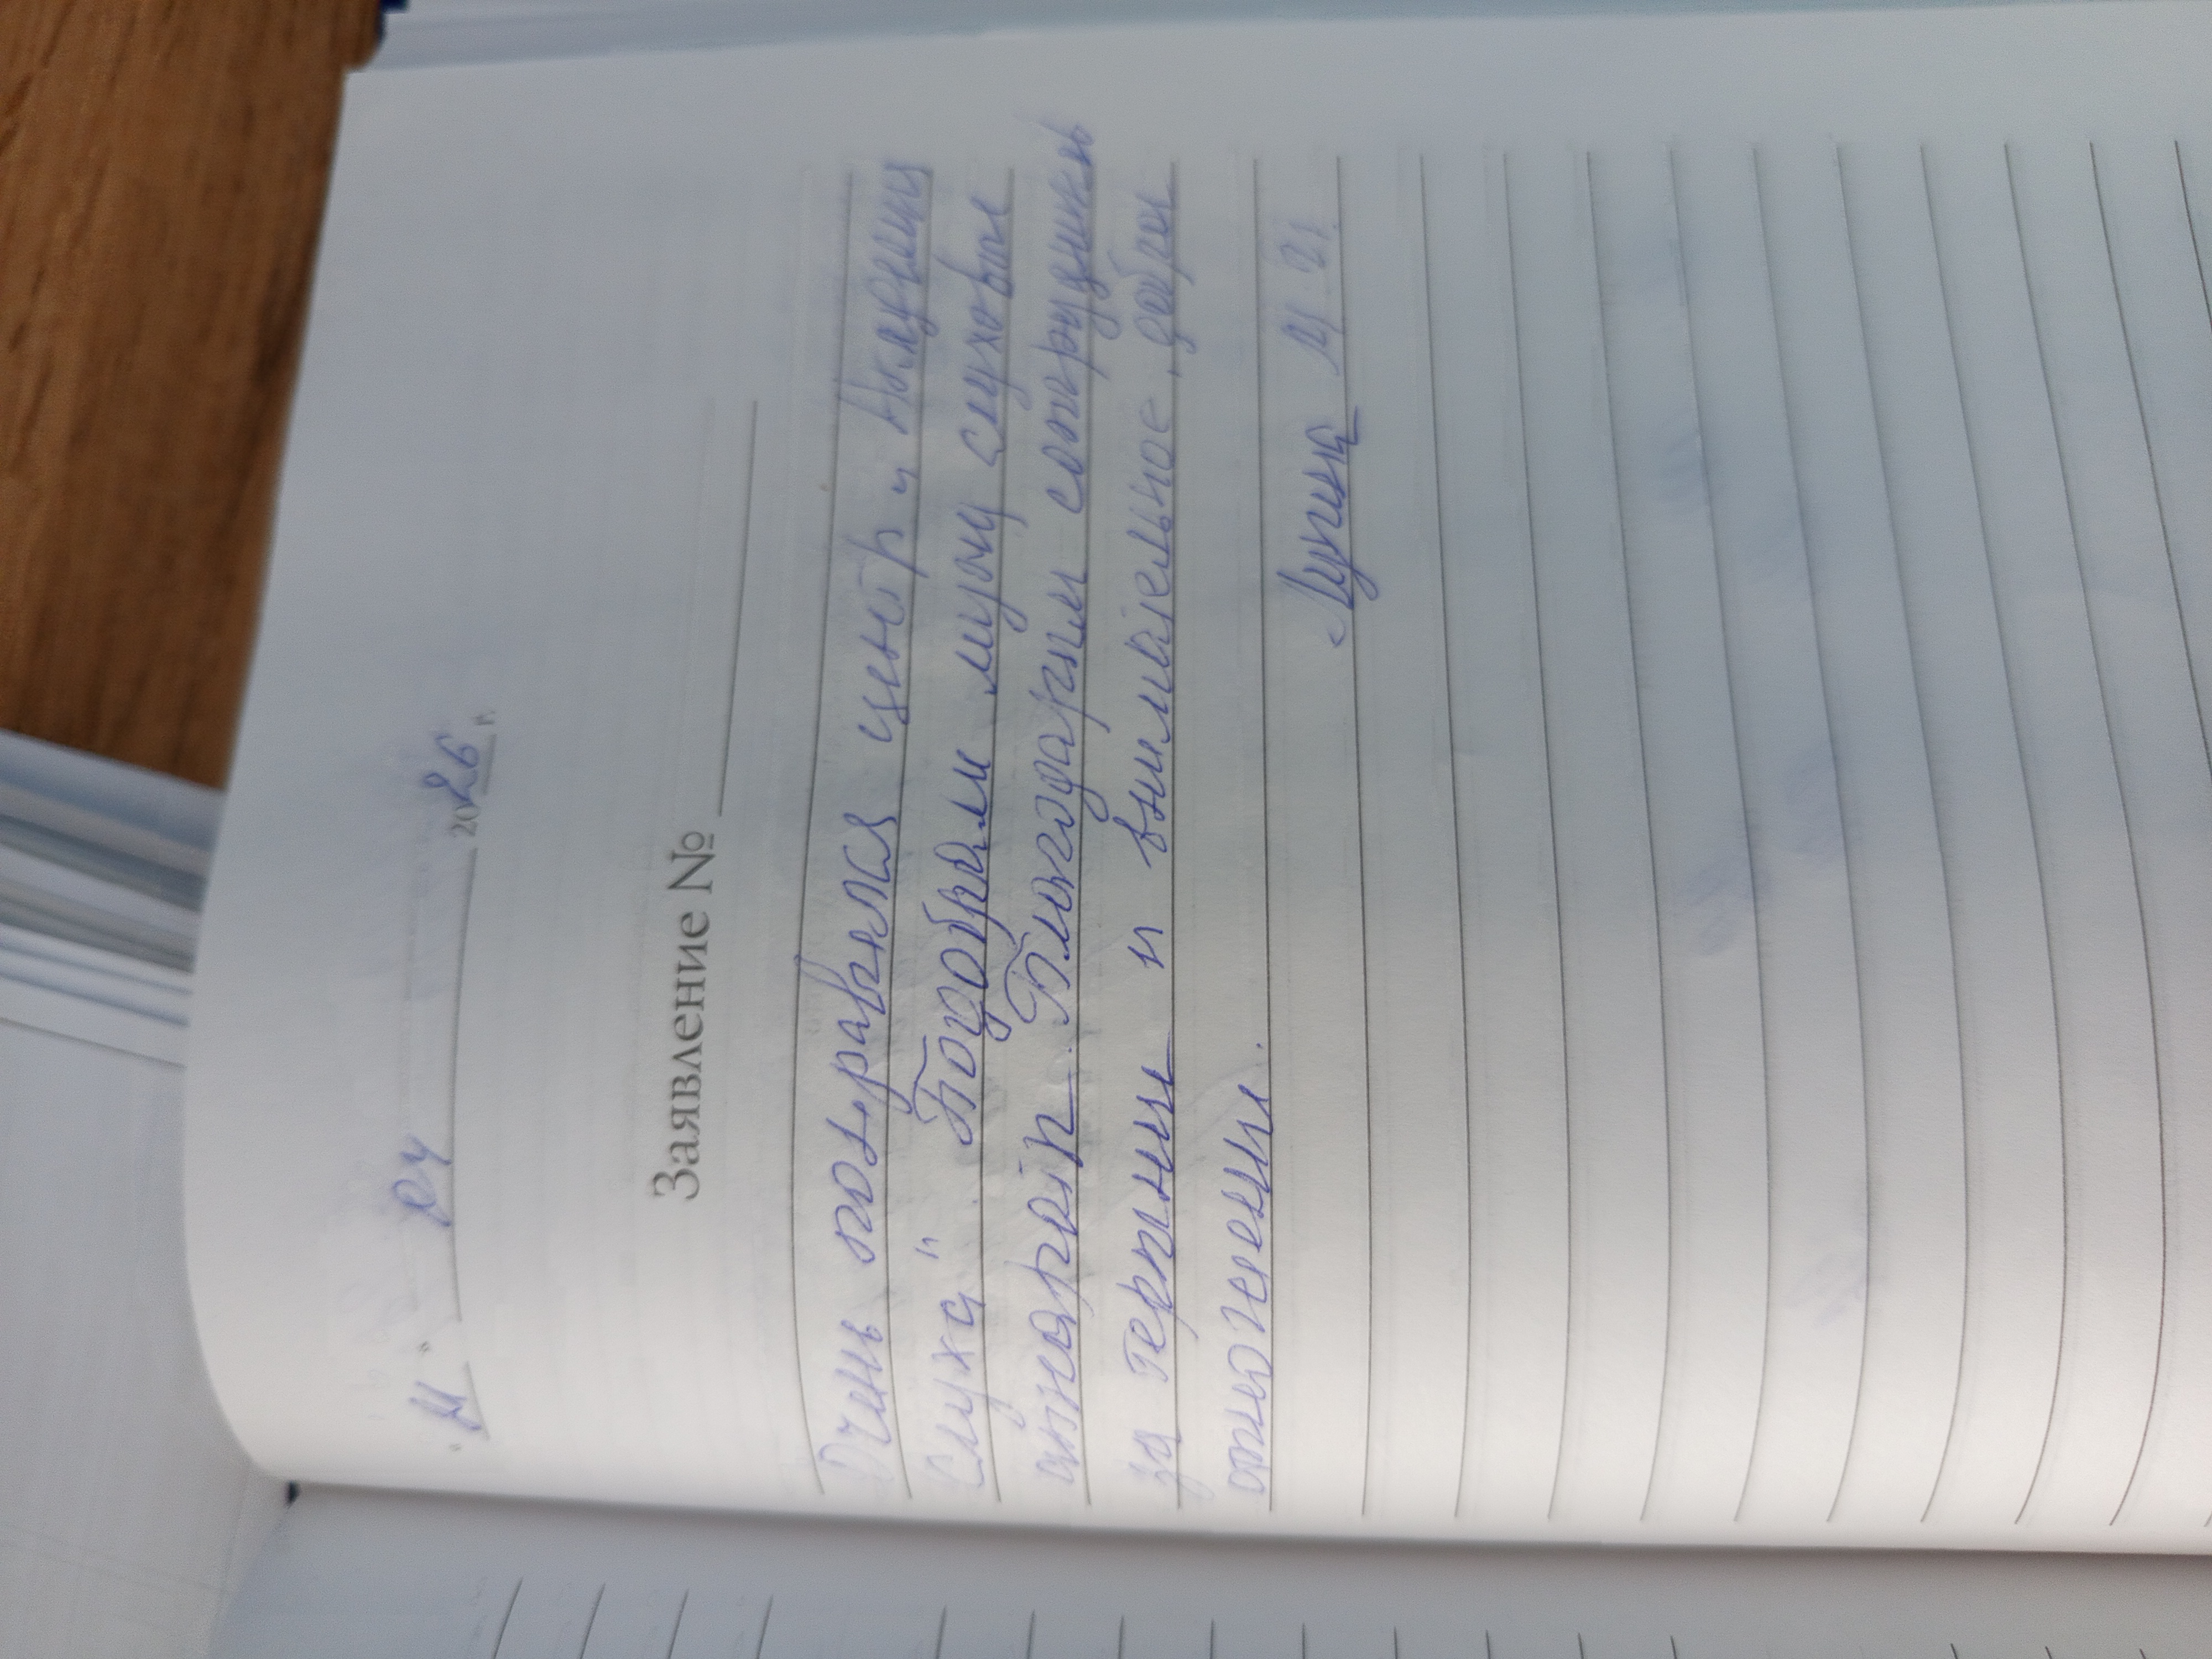 "11" 04 2026 г.
Заявление №
Очень понравился центр „Академия
Слуха". Подобрали мужу слуховой
аппарат. Благодарим сотрудников
за терпение и внимательное, доброе
отношение.
Лупина